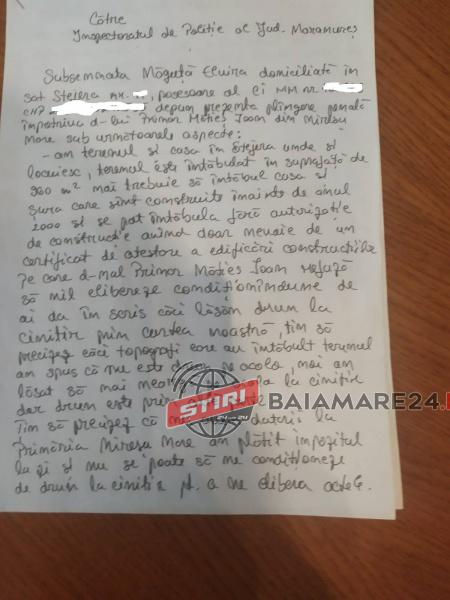 Către
Inspectoratul de Poliție al Jud. Maramureș
Subsemnata Moguță Elvira domiciliată în
sat Stejera nr. posesoare al CI MM nr.
CNP depun prezenta plîngere penală
împotriva d-lui Primar Mătieș Ioan din Mireșu
Mare sub următoarele aspecte:
- am terenul și casa în Stejera unde și
locuiesc, terenul este întăbulat în suprafață de
980 m² mai trebuie să întăbul casa și
șura care sînt construite înainte de anul
2000 și se pot întăbula fără autorizație
de construcție avînd doar nevoie de un
certificat de atestare a edificări construcțiilor
pe care d-nul Primar Mătieș Ioan refuză
să mil elibereze condiționîndune de
ai da în scris căci lăsăm drum la
cimitir prin curtea noastră, țim să
precizez căci topografi care au întăbult terenul
an spus că nu este drum pe acolo, noi am
lăsat să mai la cimitir
dar drum este prin
STIRI
24 DIN 24
BAIAMARE24.
Țim să precizez că datorii la
Primăria Mireșu Mare am plătit impozitul
la zi și nu se poate să ne condiționeze
de drum la cimitir pt. a ne elibera actele.